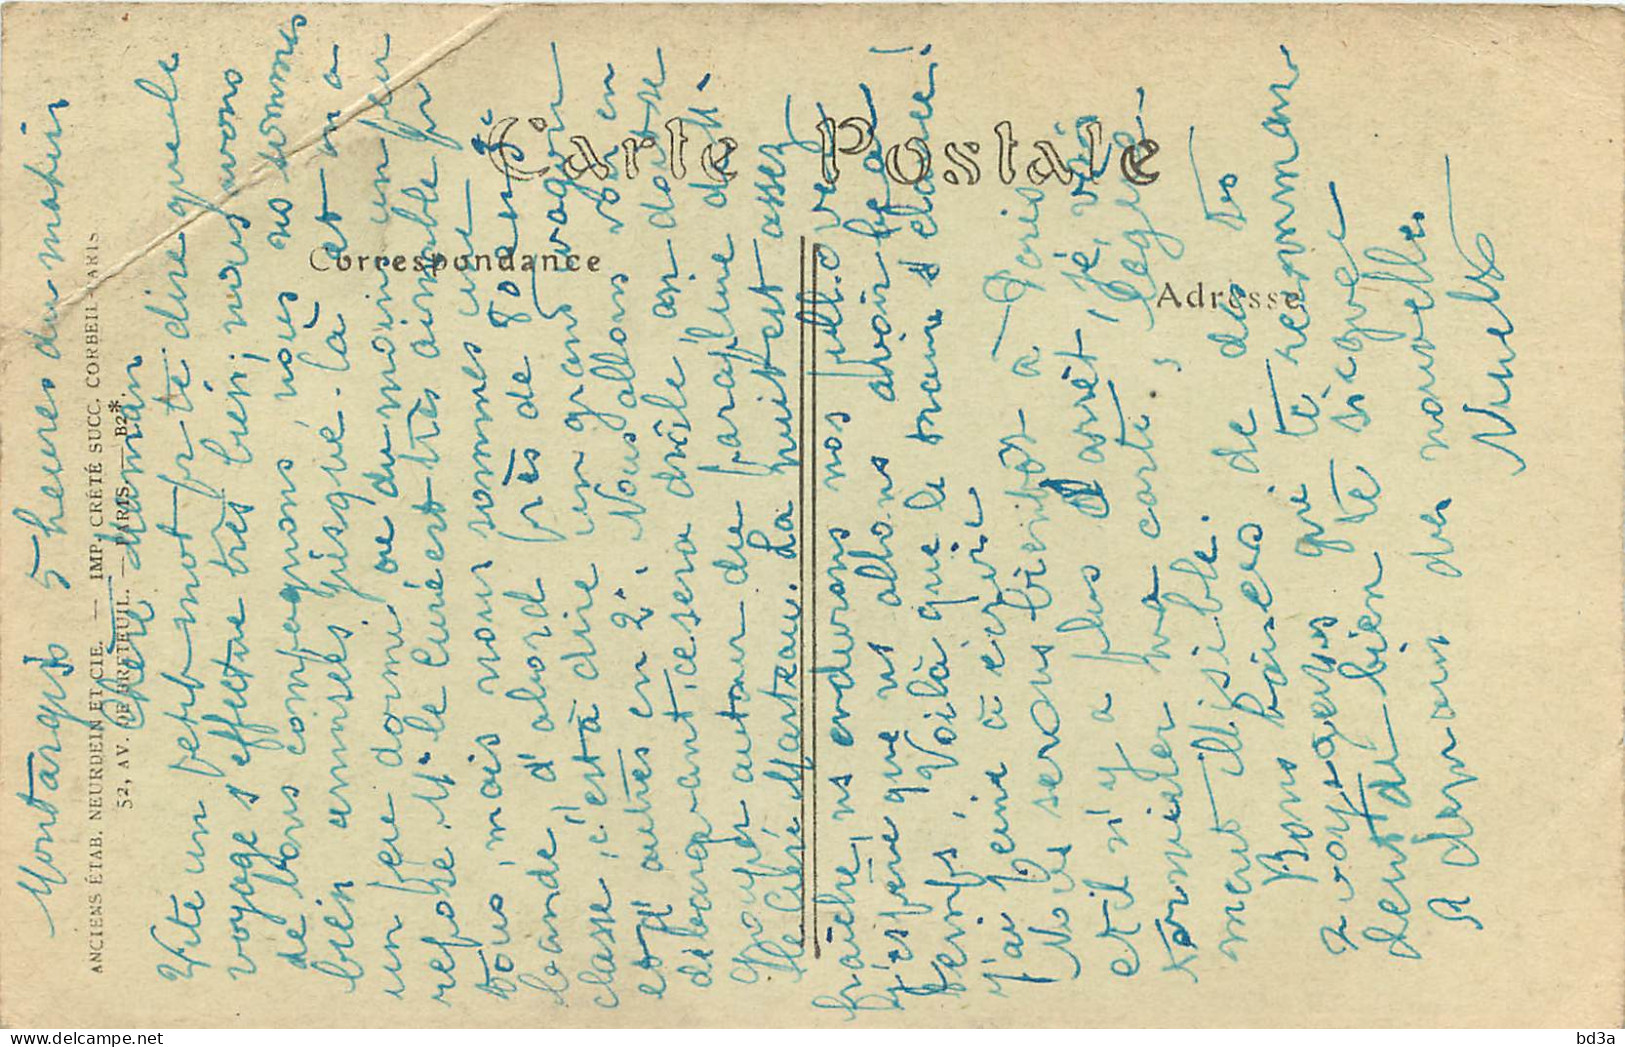 Carte Postale
Correspondance
Adresse
ANCIENS ÉTAB. NEURDEIN ET CIE. — IMP. CRÉTÉ SUCC. CORBEIL-PARIS
52, AV. DE BRETEUIL. — PARIS — B2*.
Montargis 5 heures du matin
Chère maman
Vite un petit mot pr te dire que le
voyage s'effectue très bien; nous avons
de bons compagnons, nous ns sommes
bien amusés jusque-là et on a
un peu dormi ou du moins un peu
reposé. Mr le Curé est très aimable pr
tous, mais nous sommes une
bande, d'abord près de 80 en 3e
classe, c'est à dire un grand wagon
et d'autres en 2e. Nous allons voir en
débarquant, ce sera drôle, on doit se
grouper autour du parapluie de M.
le Curé Marteau. La nuit est assez
fraîche, ns endurons nos pull-overs
j'espère que ns allons avoir beau
temps. Voilà que le train s'élance!
j'ai peine à écrire
Nous serons bientôt à Paris
et il n'y a plus d'arrêt, je vais
terminer ma carte, légère-
ment illisible.
Bons baisers de das tes
voyageuses qui te recomman
dent de bien te soigner
A demain des nouvelles